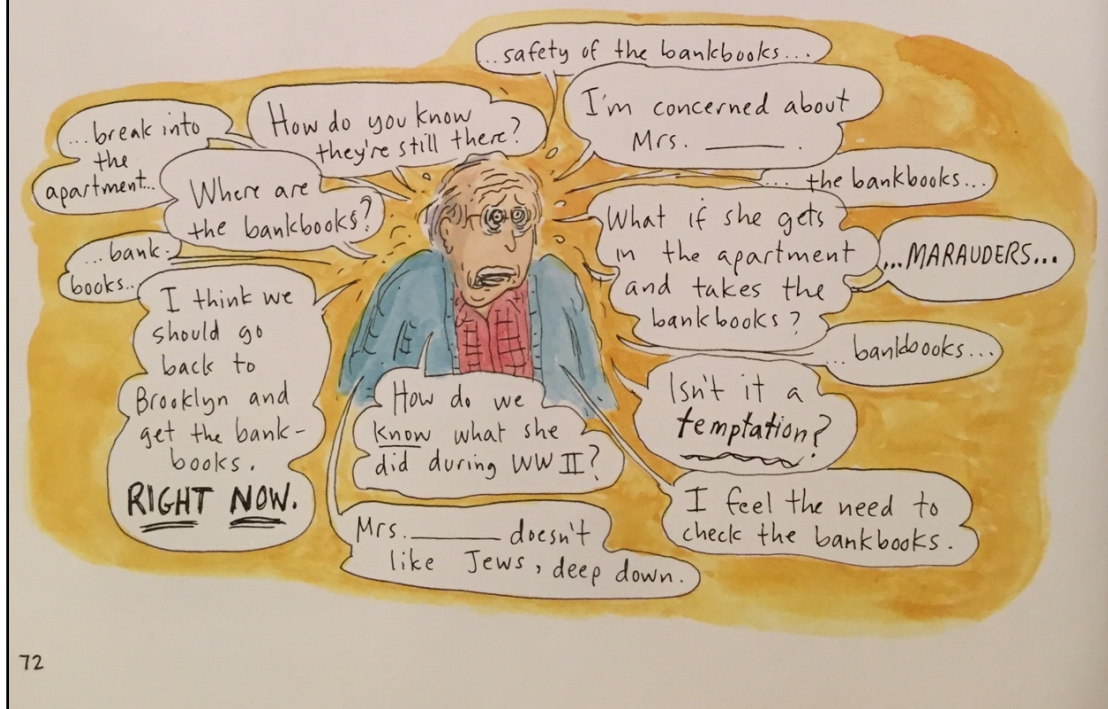 ...safety of the bankbooks...
...break into
the
apartment...
How do you know
they're still there?
I'm concerned about
Mrs. ______ .
Where are
the bankbooks?
... the bankbooks...
What if she gets
in the apartment
and takes the
bankbooks?
...MARAUDERS...
...bank-
books...
I think we
should go
back to
Brooklyn and
get the bank-
books.
RIGHT NOW.
... bankbooks...
How do we
know what she
did during WW II?
Isn't it a
temptation?
I feel the need to
check the bankbooks.
Mrs. ______ doesn't
like Jews, deep down.
72